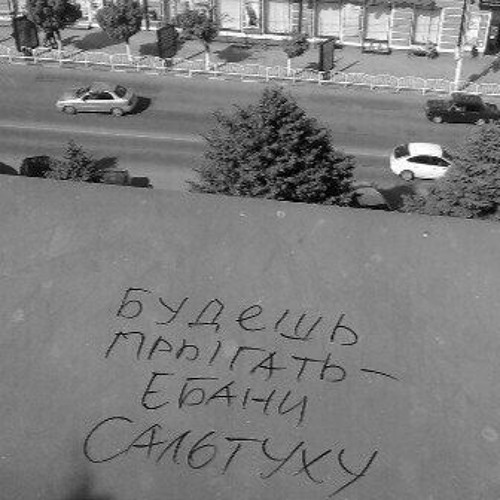 Будешь
прыгать —
ебани
сальтуху